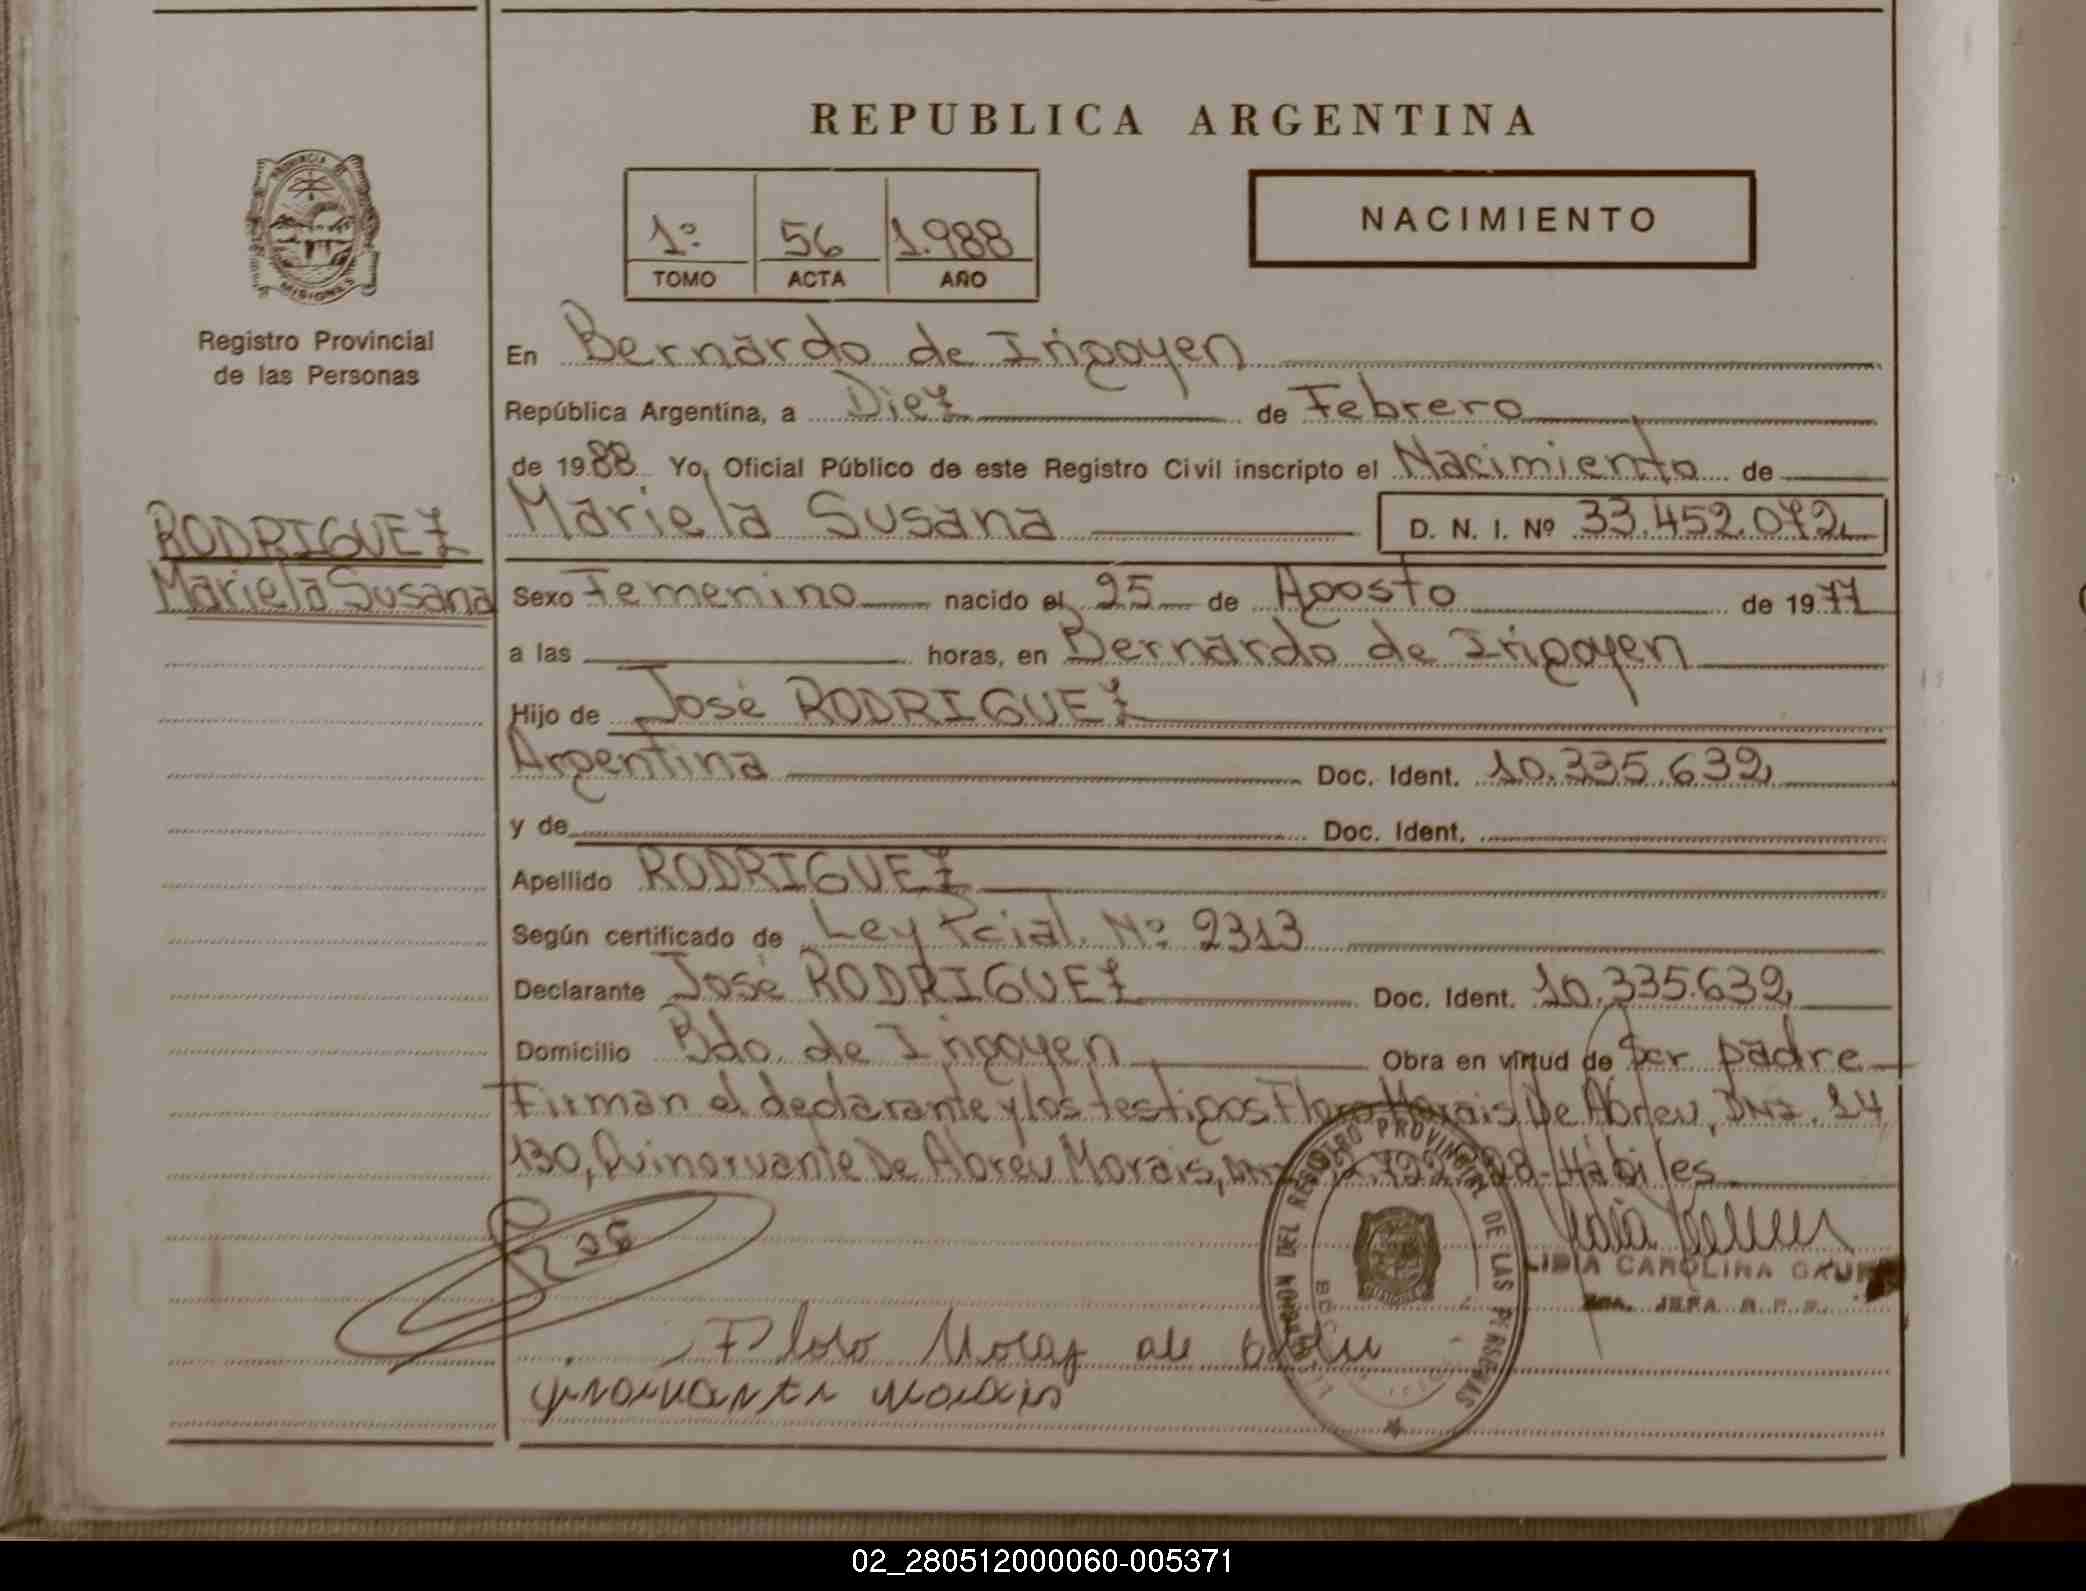 REPUBLICA ARGENTINA
PROVINCIA DE MISIONES
Registro Provincial
de las Personas
1º 56 1.988
TOMO ACTA AÑO
NACIMIENTO
En Bernardo de Irigoyen
República Argentina, a Diez de Febrero
de 1988 Yo, Oficial Público de este Registro Civil inscripto el Nacimiento de
RODRIGUEZ
Mariela Susana
Mariela Susana D. N. I. Nº 33.452.072
Sexo Femenino nacido el 25 de Agosto de 1977
a las horas, en Bernardo de Irigoyen
Hijo de José RODRIGUEZ
Argentina Doc. Ident. 10.335.632
y de Doc. Ident.
Apellido RODRIGUEZ
Según certificado de Ley Pcial. Nº 2313
Declarante José RODRIGUEZ Doc. Ident. 10.335.632
Domicilio Bdo. de Irigoyen Obra en virtud de Ser padre
Firman el declarante y los testigos Floro Morais De Abreu, DNI. 14
130, De Abreu Morais, Hábiles
REGISTRO PROVINCIAL DE LAS PERSONAS
LIDIA CAROLINA
JEFA R.P.P.
02_280512000060-005371